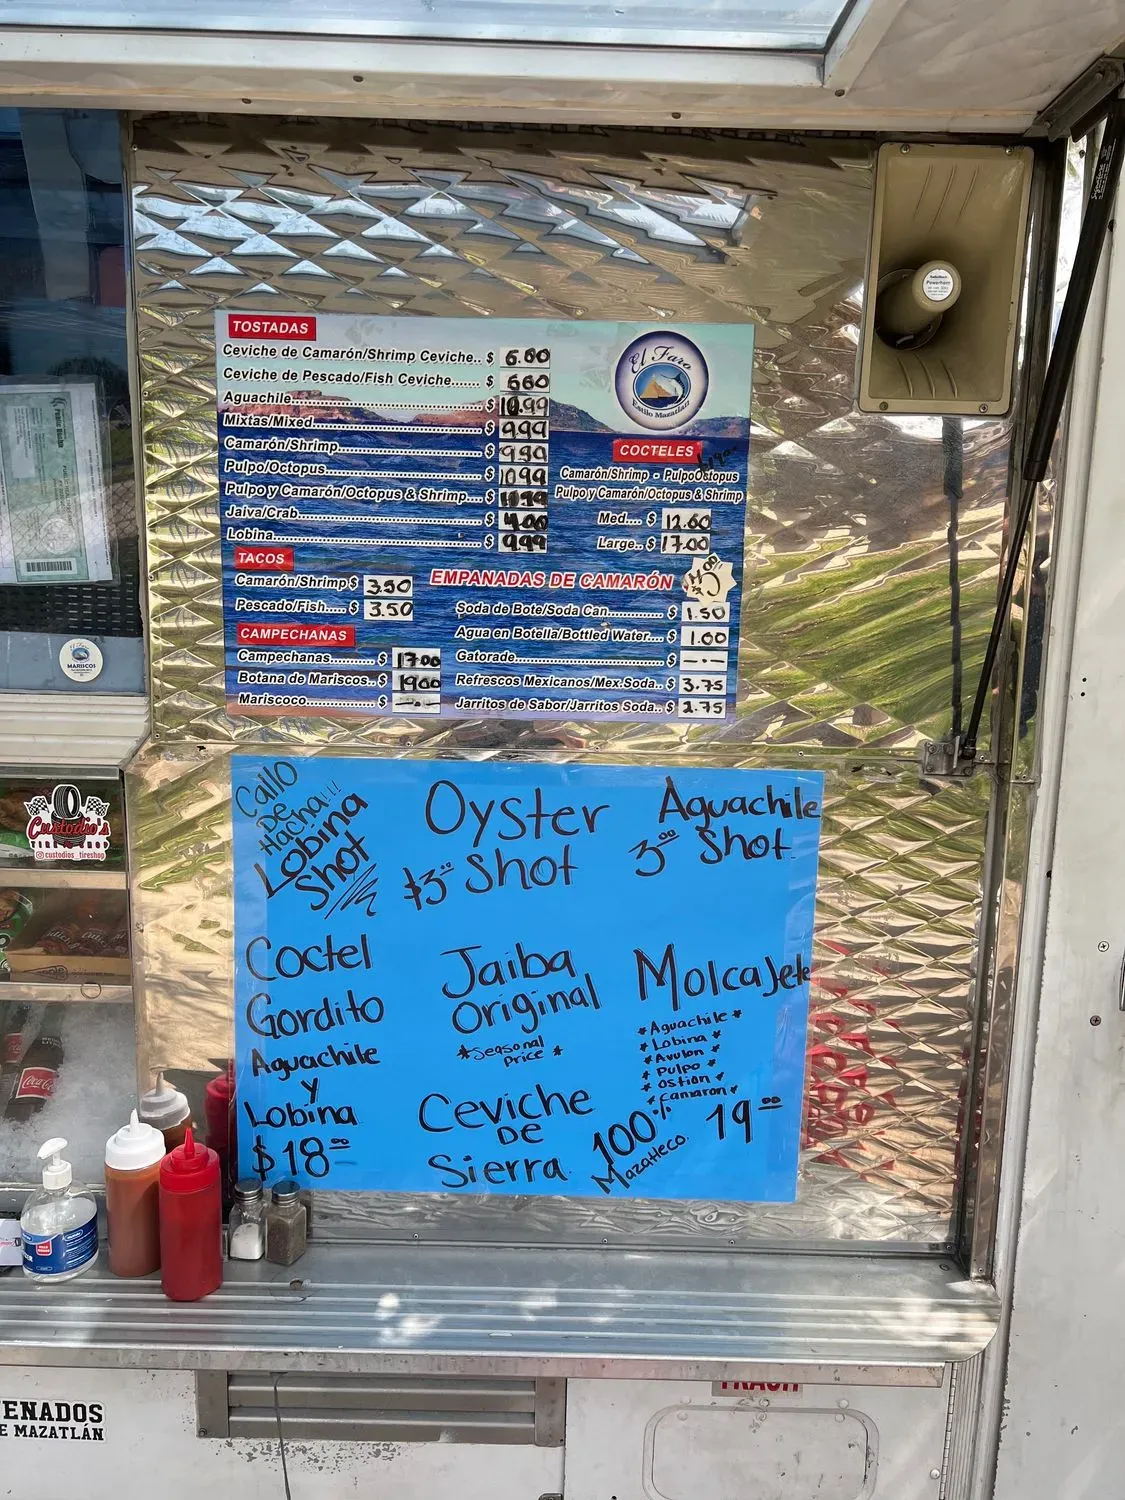 TOSTADAS
Ceviche de Camarón/Shrimp Ceviche.. $ 6.00
Ceviche de Pescado/Fish Ceviche....... $ 600
Aguachile........ $ 10.99
Mixtas/Mixed........ $ 9.99
Camarón/Shrimp........ $
Pulpo/Octopus........ $ 1099
Pulpo y Camarón/Octopus & Shrimp.... $
Jaiva/Crab........ $
Lobina........ $ 9.99
TACOS
Camarón/Shrimp $ 3.50
Pescado/Fish..... $ 3.50
CAMPECHANAS
Campechanas.......... $ 1700
Botana de Mariscos.. $ 1900
Mariscoco.............. $ —.—
El Faro
Estilo Mazatlan
COCTELES
Camarón/Shrimp - Pulpo/Octopus
Pulpo y Camarón/Octopus & Shrimp
Med.... $ 12.00
Large.. $ 17.00
EMPANADAS DE CAMARÓN
Soda de Bote/Soda Can............ $ 1.50
Agua en Botella/Bottled Water.... $ 1.00
Gatorade........ $ —.—
Refrescos Mexicanos/Mex.Soda.. $ 3.75
Jarritos de Sabor/Jarritos Soda.. $ 2.75
Callo
De
Hacha!!!
Lobina
Shot
Oyster
$3.00 Shot
Aguachile
3.00 Shot
Coctel
Gordito
Aguachile
y
Lobina
$18.00
Jaiba
Original
*Seasonal
Price *
Ceviche
DE
Sierra
Molcajete
*Aguachile*
*Lobina*
*Avulon*
*Pulpo*
*Ostion*
*Camaron*
100%
Mazatleco
19.00
MARISCOS
Custodio's
TIRE SHOP
custodios_tireshop
Coca-Cola
Powerhorn
ENADOS
E MAZATLÁN
TRASH